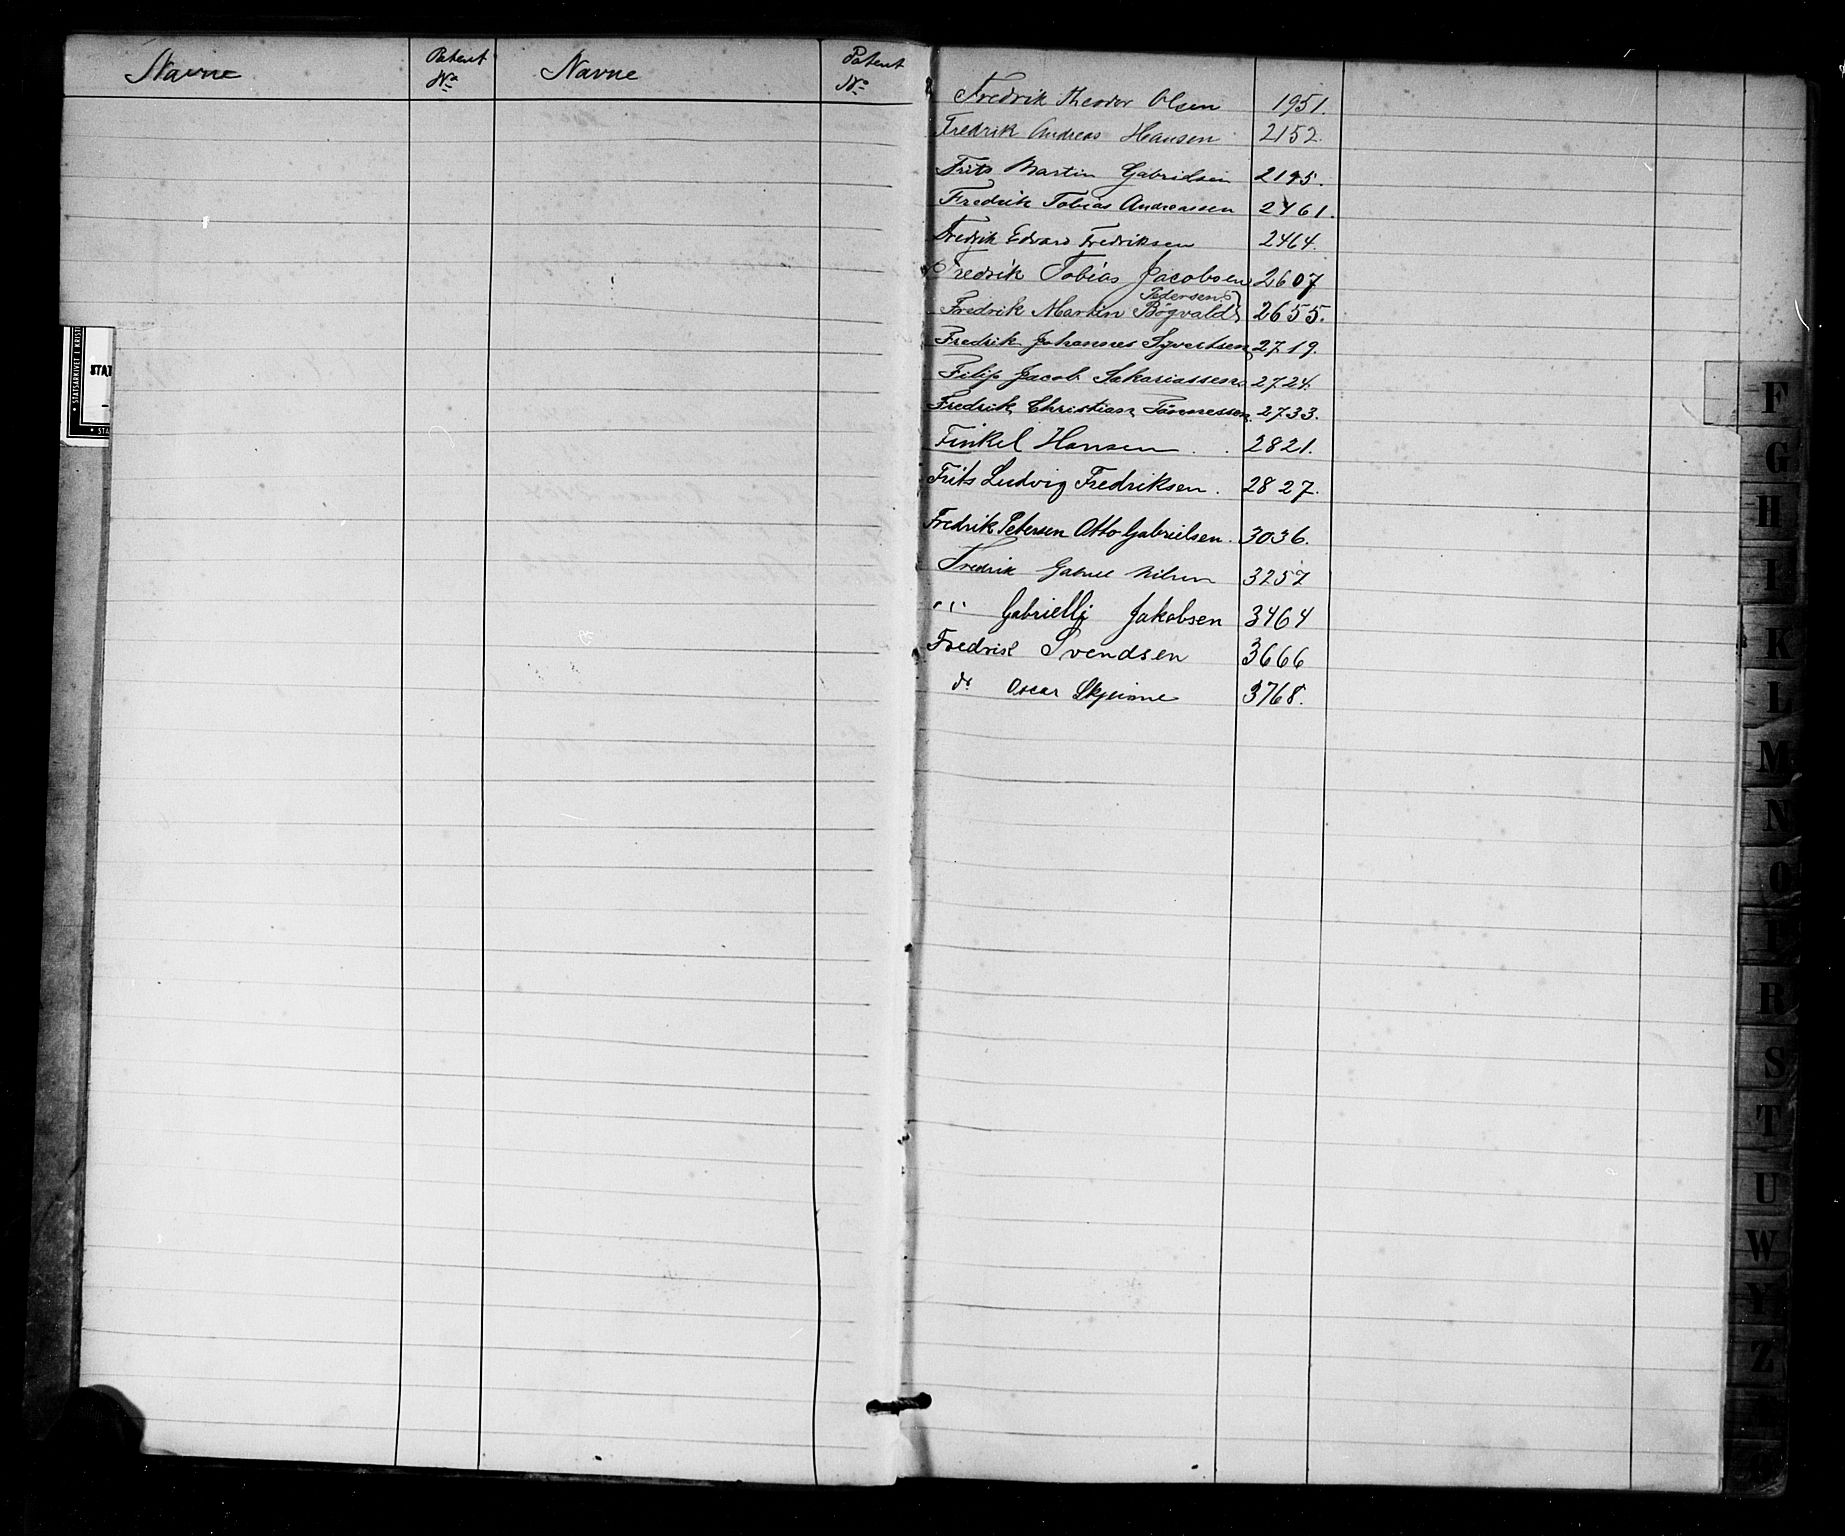 Navne Patent No Navne Patent No
Fredrik Theodor Olsen 1951.
Fredrik Andreas Hansen 2152.
Frits Martin Gabrielsen 2195.
Fredrik Tobias Andreassen 2461.
Fredrik Edvard Fredriksen 2464.
Fredrik Tobias Jacobsen 2607
Pedersen
Fredrik Martin Bøgvald 2655.
Fredrik Johannes Syvertsen 2719.
Filip Jacob Sakariassen 2724.
Fredrik Christian Tönnessen 2733.
Finkel Hansen 2821.
Frits Ludvig Fredriksen. 2827.
Fredrik Petersen Otto Gabrielsen. 3036.
Fredrik Gabriel Nilsen 3257
" Gabrielly Jakobsen 3464
Fredrik Svendsen 3666
do Oscar Skjeime 3768.
STATSARKIVET I KRIST
STAT
STA
F
G
H
I
K
L
M
N
O
P
R
S
T
U
W
Y
Z